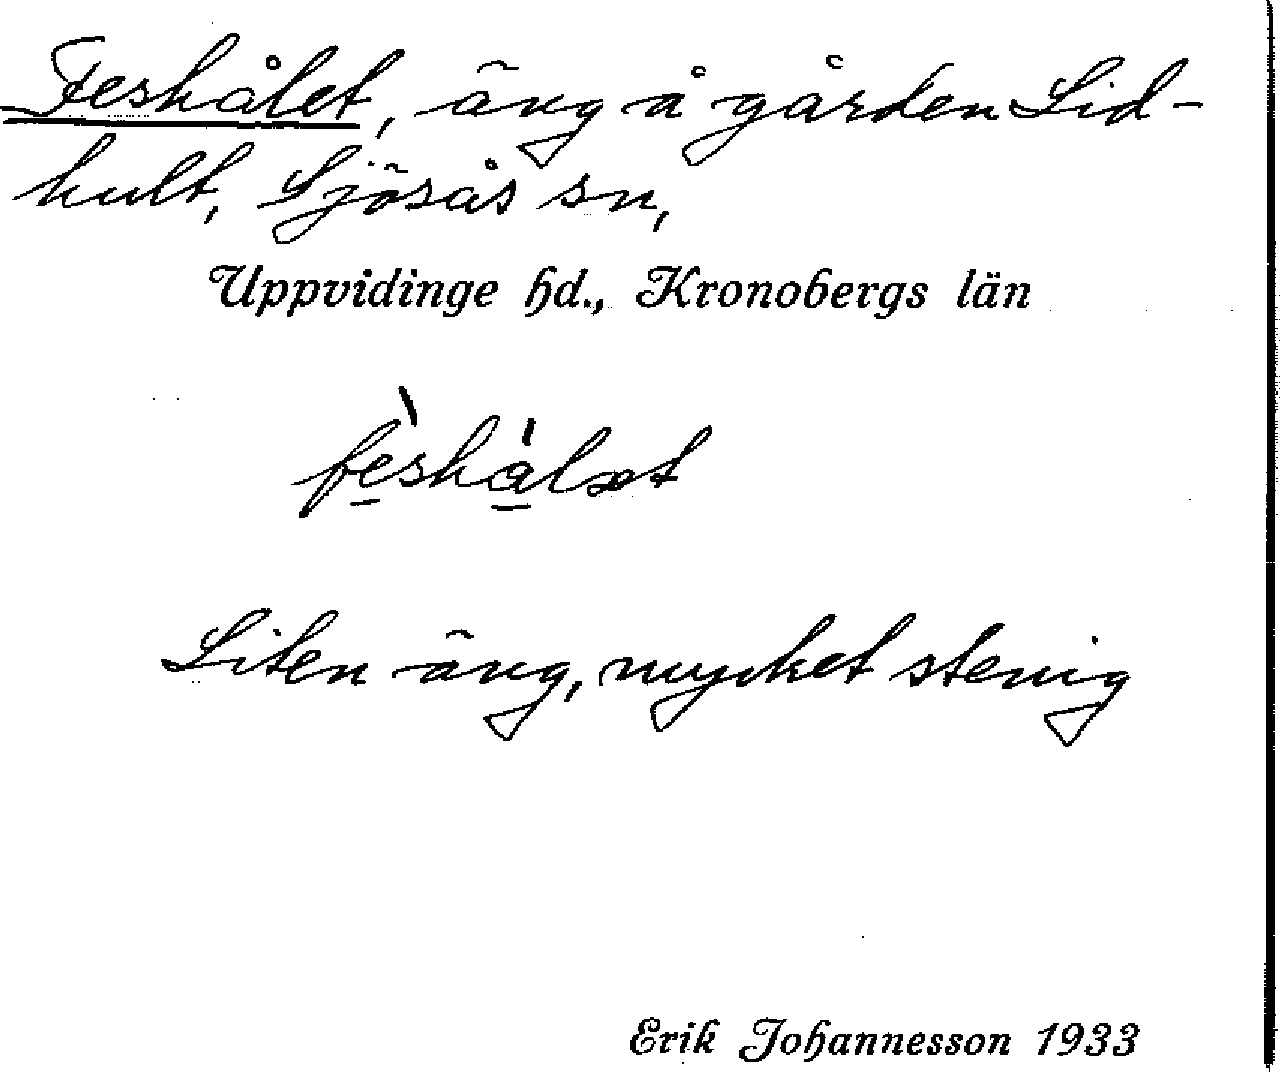 Feshålet, äng å gården Lid-
hult, Sjösås sn,
Uppvidinge hd., Kronobergs län
fèshálæt
Liten äng, mycket stenig
Erik Johannesson 1933